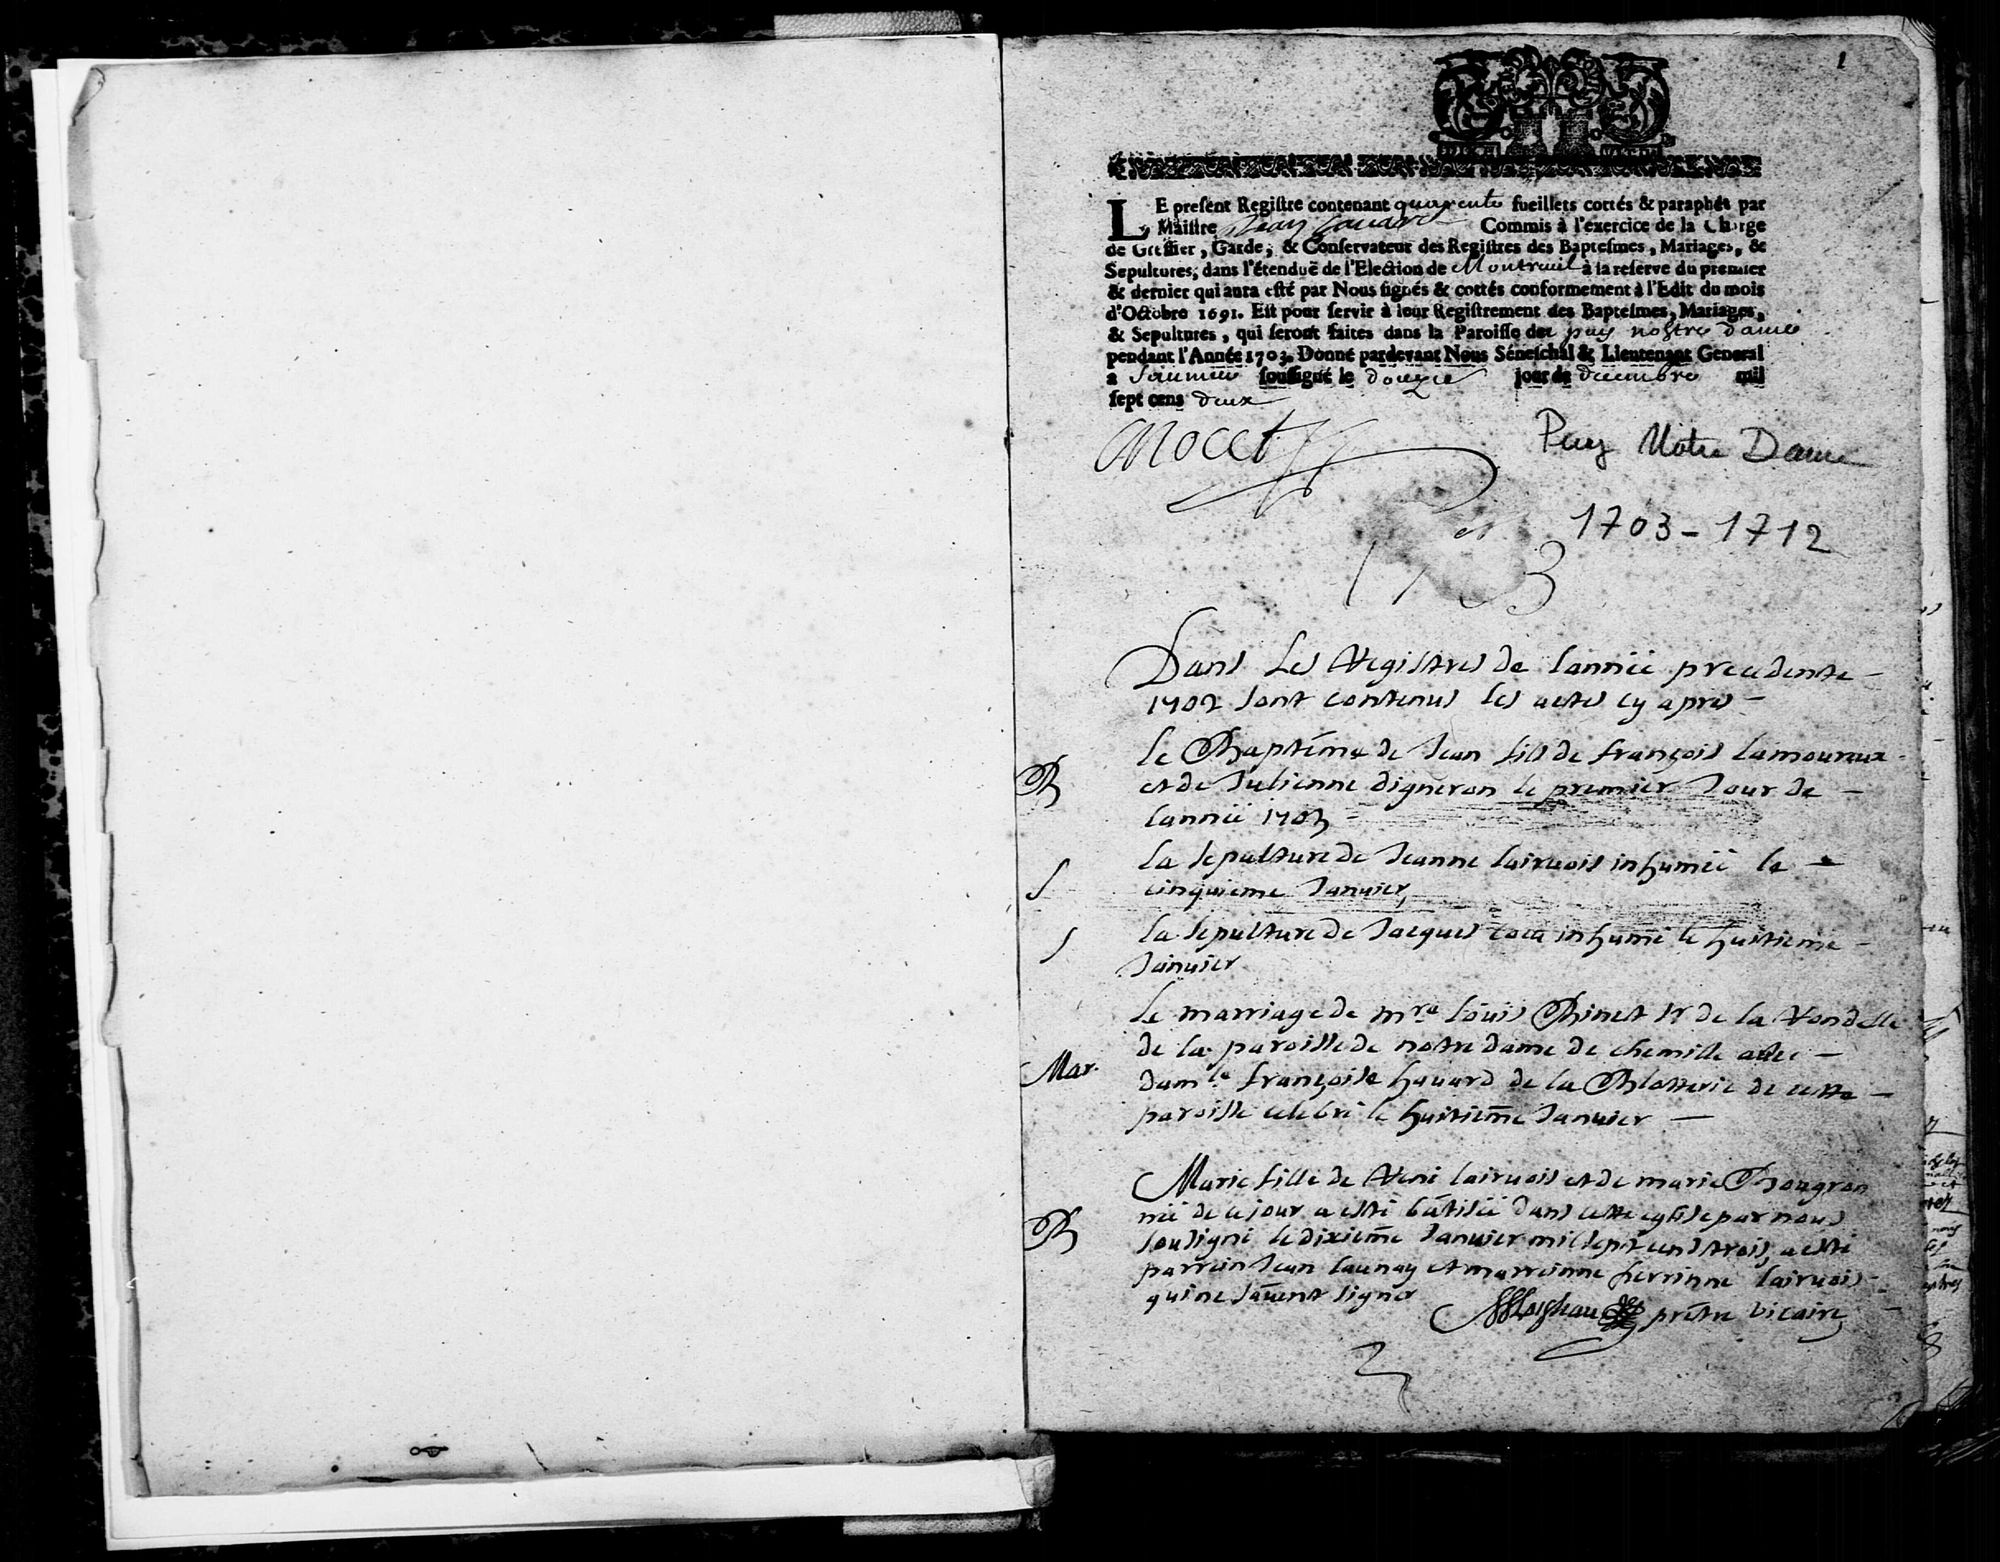 1
LE present Registre contenant quarente fueillets cottés & paraphés par
Maistre Jean Commis à l'exercice de la Charge
de Greffier, Garde, & Conservateur des Registres des Baptesmes, Mariages, &
Sepultures, dans l'étenduë de l'Election de Montreuil à la reserve du premier
& dernier qui aura esté par Nous signés & cottés conformement à l'Edit du mois
d'Octobre 1691. Est pour servir à leur Registrement des Baptesmes, Mariages,
& Sepultures, qui seront faites dans la Paroisse de puy nostre dame
pendant l'Année 1703. Donné pardevant Nous Séneschal & Lieutenant General
a Saumur soussigné le douzie jour de decembre mil
sept cens deux
Mocet
Puy Notre Dame
1703 - 1712
Dans Les Registres de lannée precedente
1702 sont contenus les actes cy apres
B
le Baptéme de Jean fils de françois lamoureux
et de Julienne digneron le premier Jour de
lannée 1703
S
la sepulture de Jeanne lairuois inhumée le
cinquieme Januier
S
la sepulture de Jacques inhumé le huitieme
Januier
Mar.
le marriage de mre louis Binet sr de la
de la paroisse de notre dame de chemille auec
damle françoise hauard de la Blotterie de cette
paroisse celebré le huitiéme Januier
B
Marie fille de René lairuois et de marie Bougron
née de ce jour a esté bátisée dans cette eglise par nous
sousigné le dixiéme Januier mil sept cens trois, a esté
parrein Jean launay et marreinne perrinne lairuois
qui ne sauent signer
prêtre vicaire